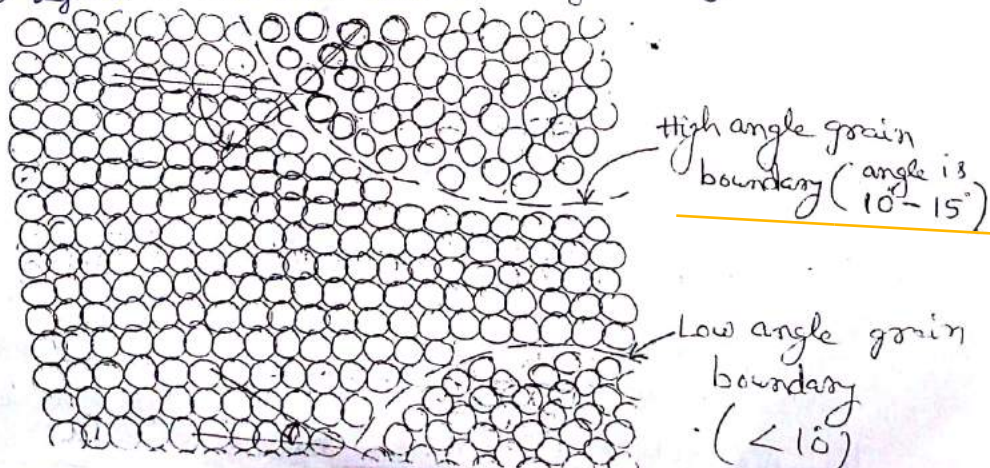 High angle grain
boundary ( angle is
10° - 15° )
Low angle grain
boundary
( < 10° )